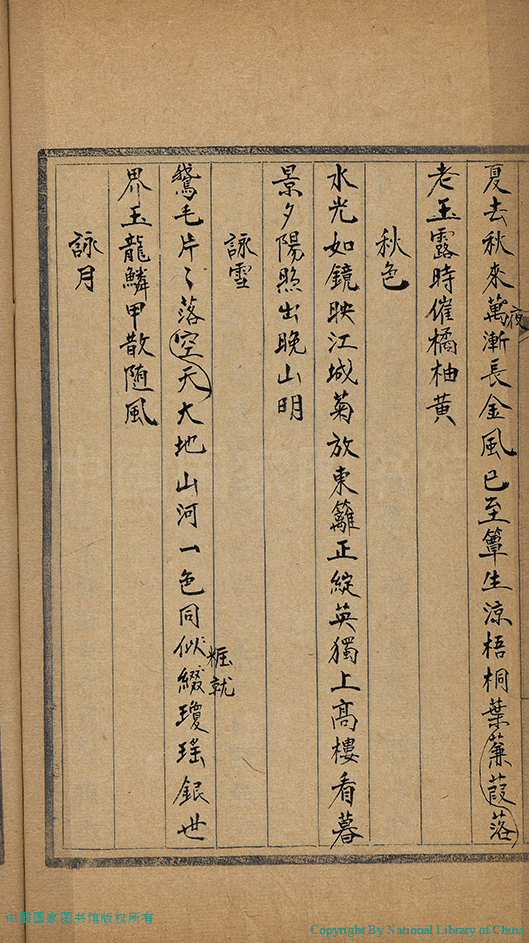 夏去秋來萬漸長金風已至簟生涼梧桐葉蒹葭落
夜
老玉露時催橘柚黃
秋色
水光如鏡映江城菊放東籬正綻英獨上高樓看暮
景夕陽照出晚山明
詠雪
鵞毛片〻落空天大地山河一色同似綴瓊瑤銀世
粧就
界玉龍鱗甲散随風
詠月
中國国家图书馆版权所有
Copyright By National Library of China